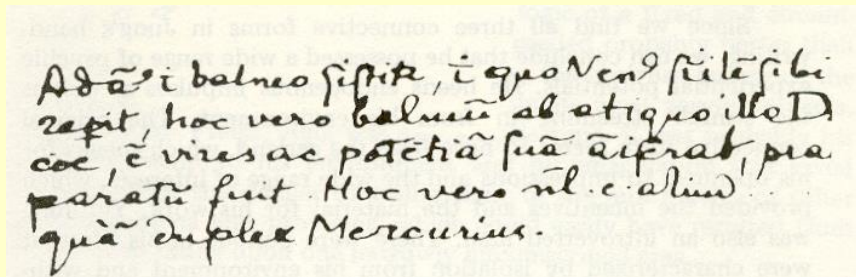 Adā ī balneo sistit, ī quo Ven⁹ sīlē sibi
repit, hoc vero balneū ab atiquo illo D
vires ac potētiā suā præ
paratū fuit. Hoc vero nīl ē aliud
quā duplex Mercurius.